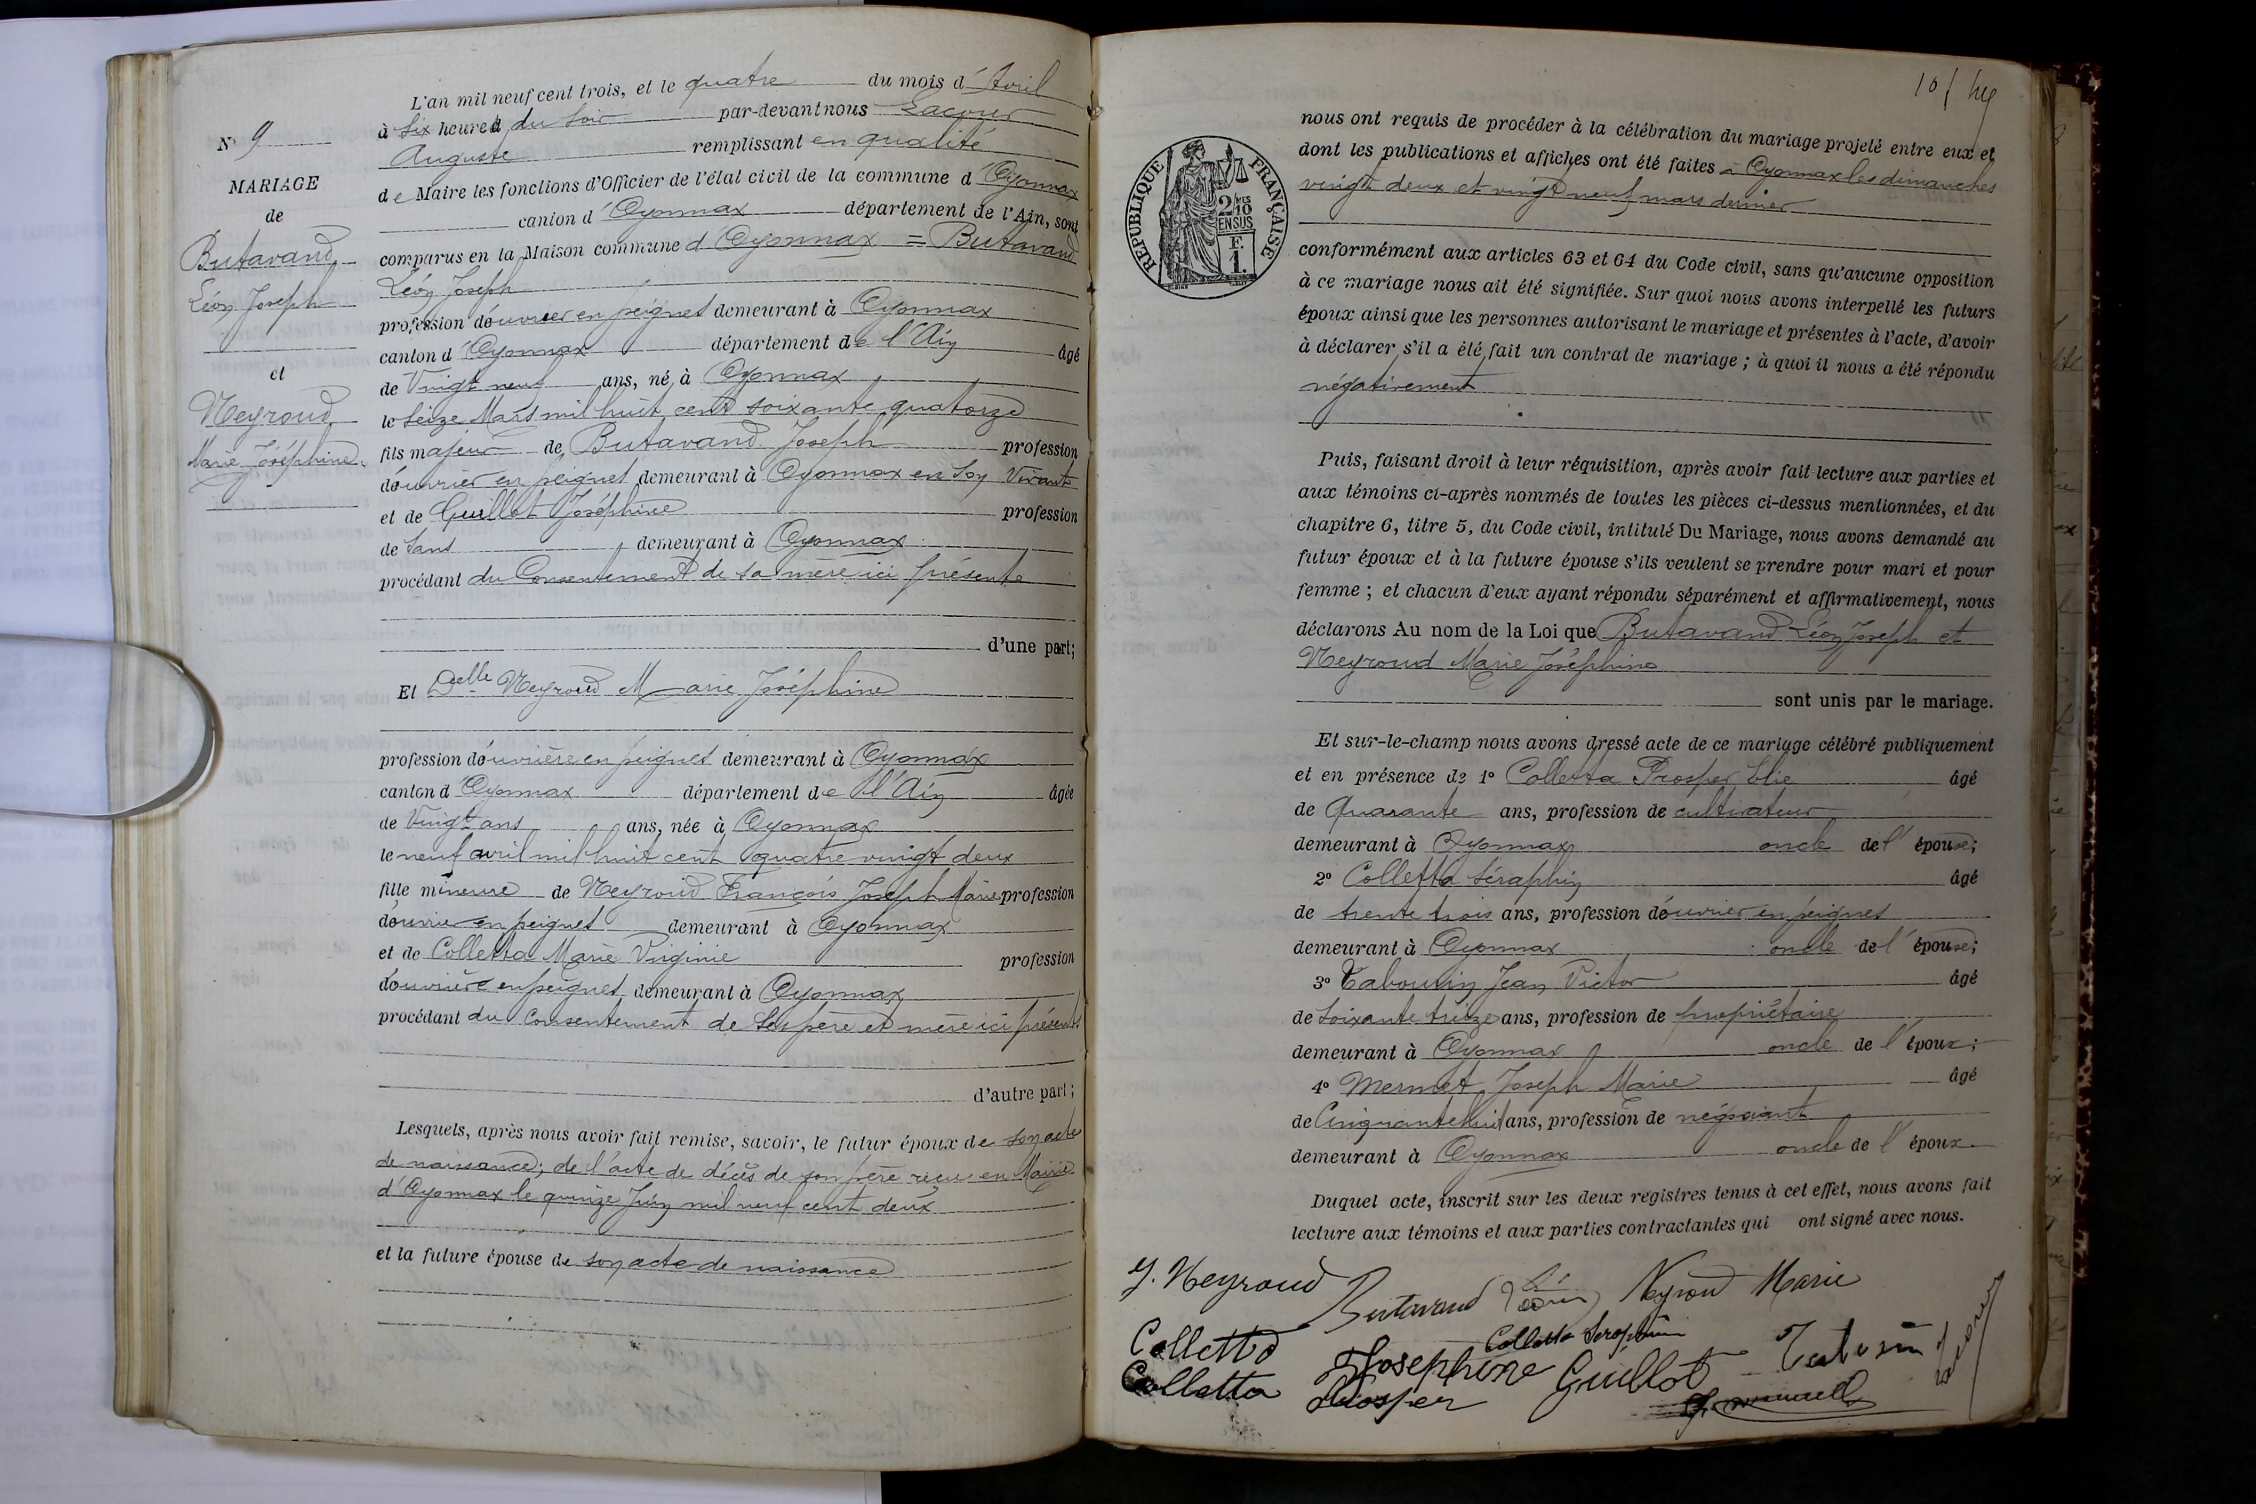 L'an mil neuf cent trois, et le quatre du mois d'Avril
à Six heures du Soir par-devant nous Lacour
Auguste remplissant en qualité
de Maire les fonctions d'Officier de l'état civil de la commune d'Oyonnax
canton d'Oyonnax département de l'Ain, sont
comparus en la Maison commune d'Oyonnax = Butavand
Léon Joseph
profession d'ouvrier en peignes demeurant à Oyonnax
canton d'Oyonnax département de l'Ain âgé
de Vingt neuf ans, né à Oyonnax
le Seize Mars mil huit cent soixante quatorze
fils majeur de Butavand Joseph profession
d'ouvrier en peignes demeurant à Oyonnax en son Vivant
et de Guillot Joséphine profession
de Sans demeurant à Oyonnax
procédant du Consentement de sa mère ici présente
d'une part;
Et Delle Neyroud Marie Joséphine
profession d'ouvrière en peignes demeurant à Oyonnax
canton d'Oyonnax département de l'Ain âgée
de Vingt ans ans, née à Oyonnax
le neuf avril mil huit cent quatre vingt deux
fille mineure de Neyroud François Joseph Marie profession
d'ouvrier en peignes demeurant à Oyonnax
et de Colletta Marie Virginie profession
d'ouvrière en peignes demeurant à Oyonnax
procédant du Consentement de ses père et mère ici présents
d'autre part;
Lesquels, après nous avoir fait remise, savoir, le futur époux de son acte
de naissance; de l'acte de décès de son père reçu en Mairie
d'Oyonnax le quinze Juin mil neuf cent deux
et la future épouse de son acte de naissance
N° 9
MARIAGE
de
Butavand
Léon Joseph
et
Neyroud
Marie Joséphine
10
RÉPUBLIQUE FRANÇAISE
2/10
EN SUS
F.
1.
nous ont requis de procéder à la célébration du mariage projeté entre eux et
dont les publications et affiches ont été faites à Oyonnax les dimanches
vingt deux et vingt neuf mars dernier
conformément aux articles 63 et 64 du Code civil, sans qu'aucune opposition
à ce mariage nous ait été signifiée. Sur quoi nous avons interpellé les futurs
époux ainsi que les personnes autorisant le mariage et présentes à l'acte, d'avoir
à déclarer s'il a été fait un contrat de mariage; à quoi il nous a été répondu
négativement
Puis, faisant droit à leur réquisition, après avoir fait lecture aux parties et
aux témoins ci-après nommés de toutes les pièces ci-dessus mentionnées, et du
chapitre 6, titre 5, du Code civil, intitulé Du Mariage, nous avons demandé au
futur époux et à la future épouse s'ils veulent se prendre pour mari et pour
femme; et chacun d'eux ayant répondu séparément et affirmativement, nous
déclarons Au nom de la Loi que Butavand Léon Joseph et
Neyroud Marie Joséphine
sont unis par le mariage.
Et sur-le-champ nous avons dressé acte de ce mariage célébré publiquement
et en présence de 1° Colletta Prosper Elie âgé
de Quarante ans, profession de cultivateur
demeurant à Oyonnax oncle de l'épouse;
2° Colletta Séraphin âgé
de trente trois ans, profession d'ouvrier en peignes
demeurant à Oyonnax oncle de l'épouse;
3° Tabourin Jean Victor âgé
de Soixante treize ans, profession de propriétaire
demeurant à Oyonnax oncle de l'époux;
4° Mermet Joseph Marie âgé
de Cinquante huit ans, profession de négociant
demeurant à Oyonnax oncle de l'époux
Duquel acte, inscrit sur les deux registres tenus à cet effet, nous avons fait
lecture aux témoins et aux parties contractantes qui ont signé avec nous.
J. Neyroud Butavand Léon Neyroud Marie
Colletta Colletta Seraphin
Josephine Guillot
Colletta Prosper